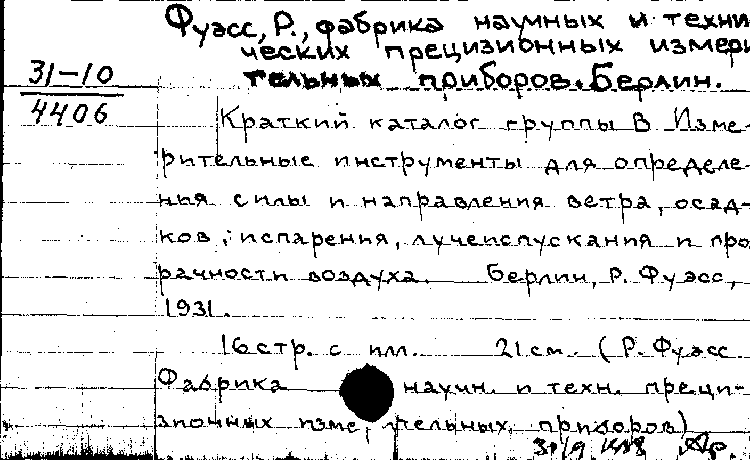 Фуэсс, Р., фабрика научных и техни
ческих прецизионных измери
тельных приборов. Берлин.
31-10
4406
Краткий каталог группы В Изме-
рительные инструменты для определе-
ния силы и направления ветра, осад-
ков, испарения, лучеиспускания и про
рачности воздуха. Берлин, Р. Фуэсс,
1931.
16 стр. с илл. 21 см. (Р. Фуэсс
Фабрика научн. и техн. преци-
зионных изме, тельных приборов)